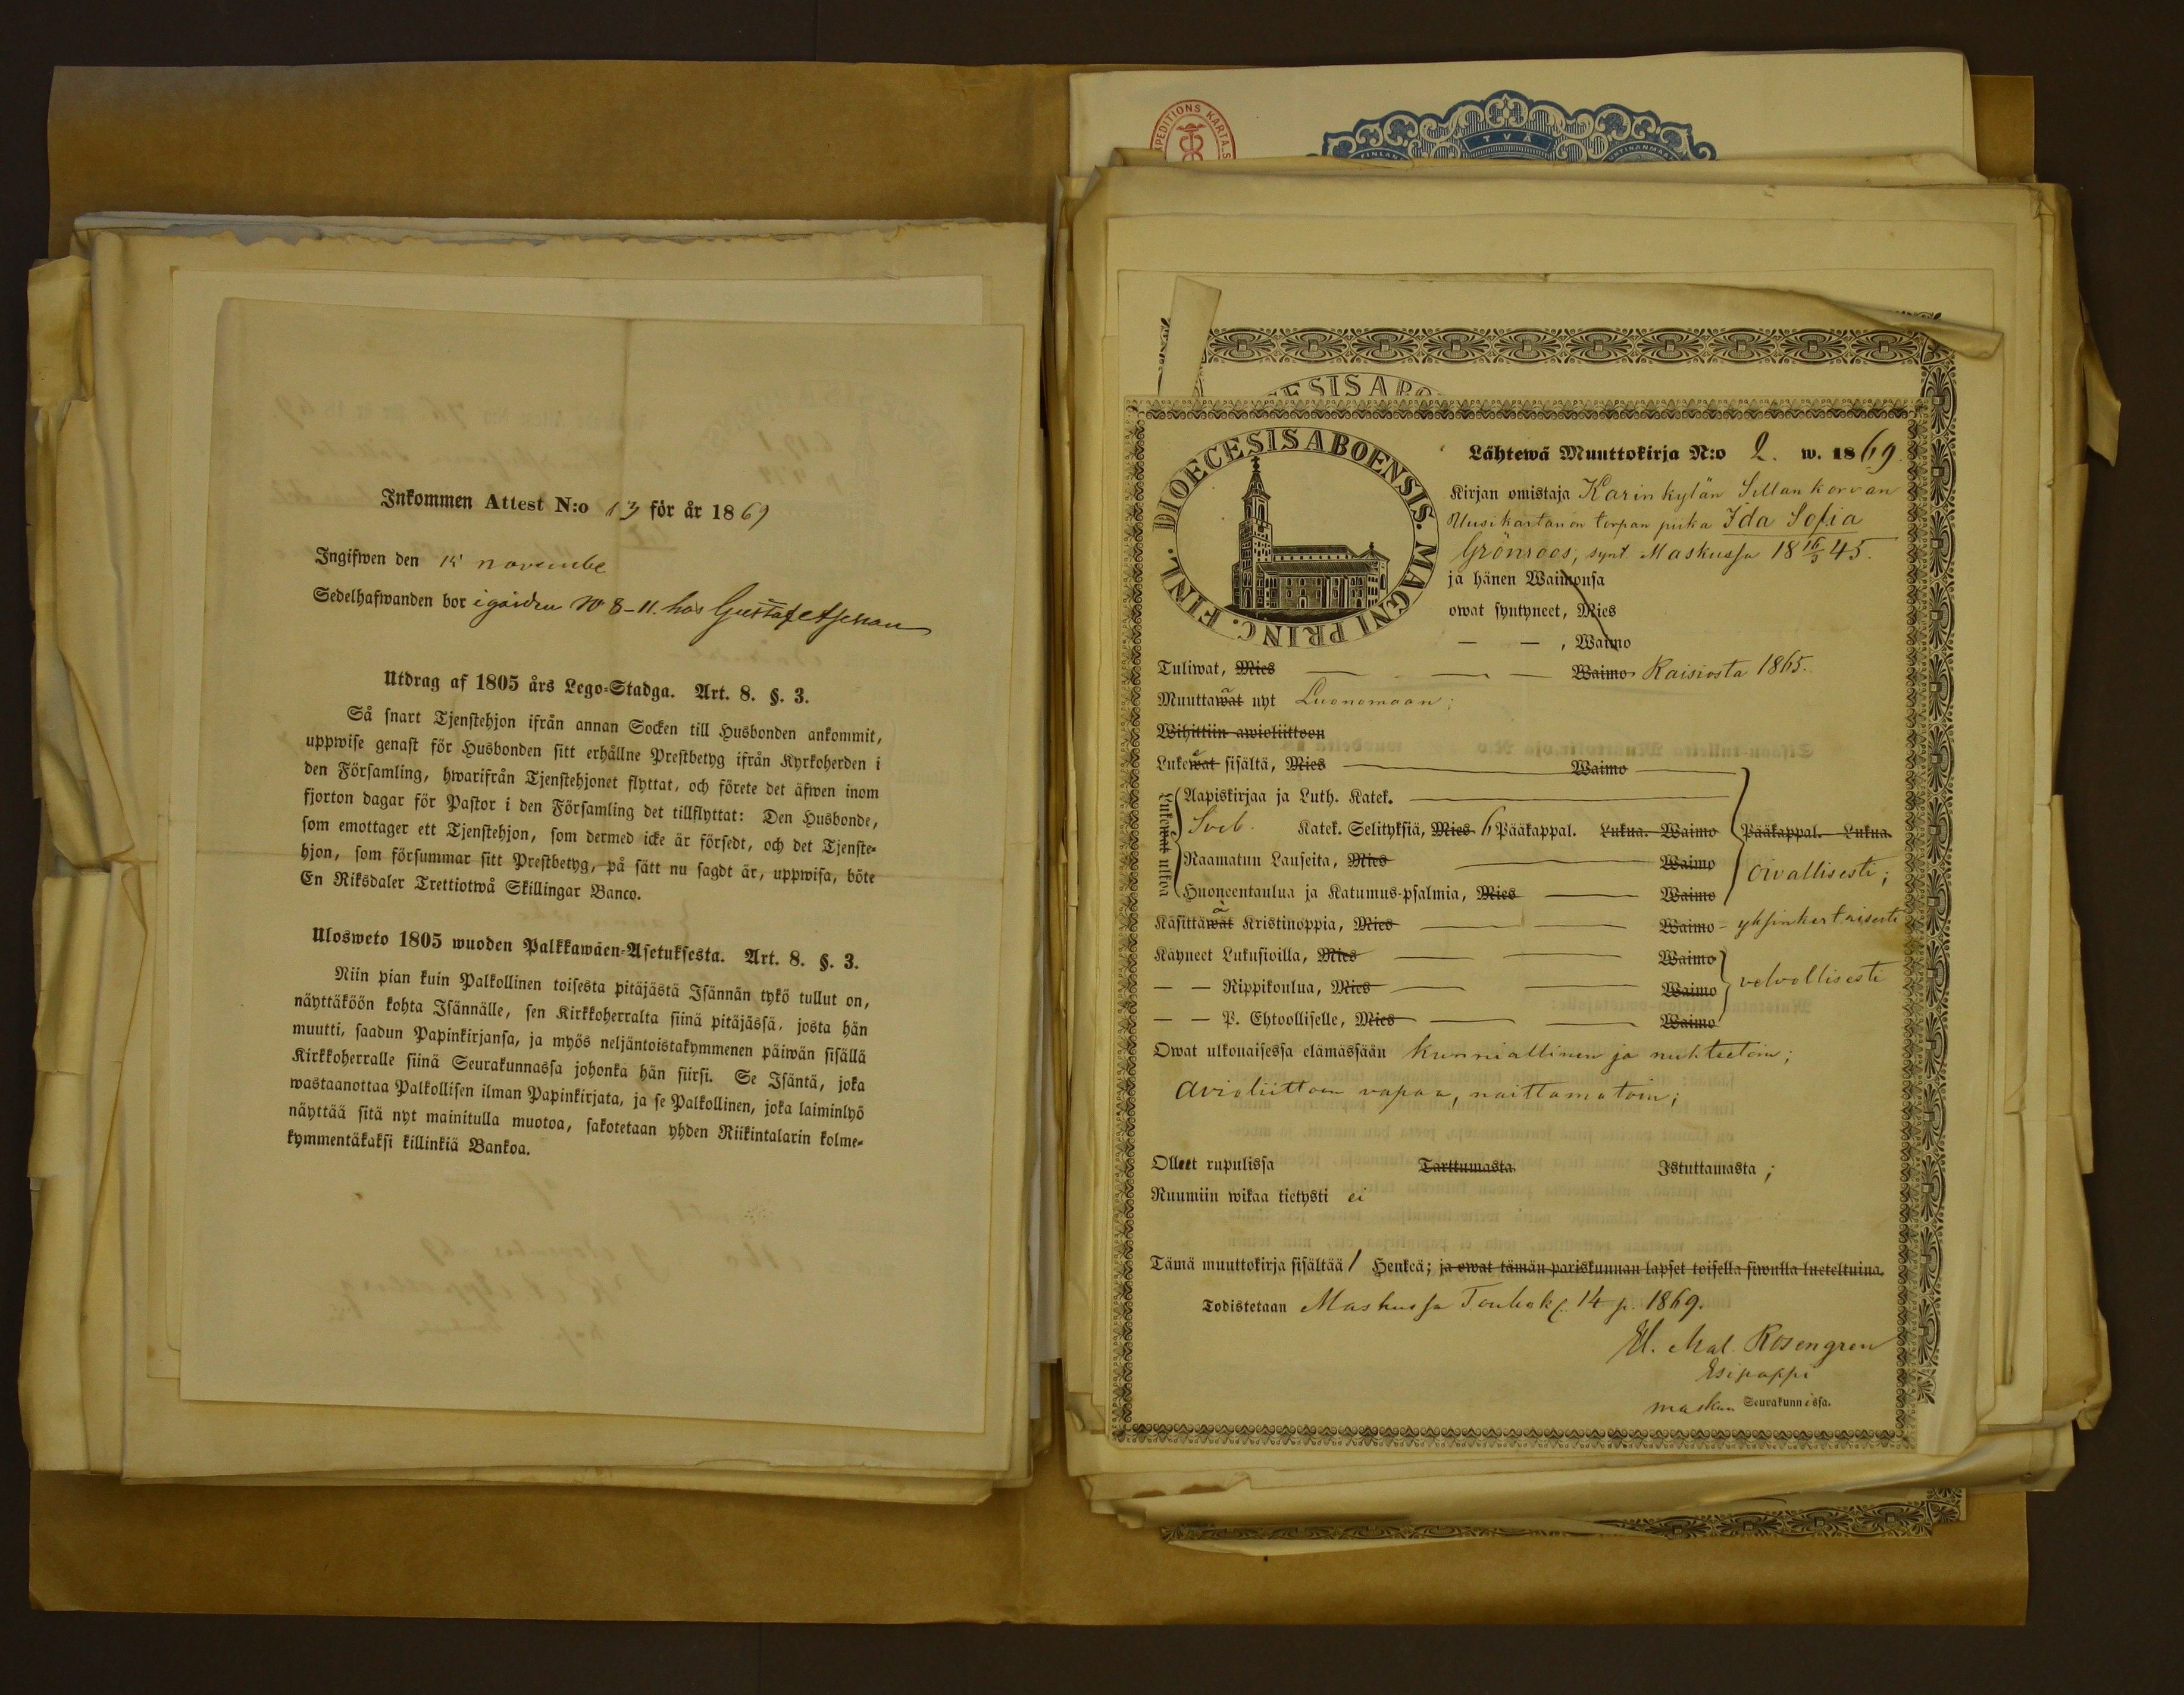 Inkommen Attest N:o 13 för år 1869
Ingifwen den 15 novembe
Sedelhafwanden bor i gården No 8-11. hos Gustaf
Utdrag af 1805 års Lego-Stadga. Art. 8. §. 3.
Så snart Tjenstehjon ifrån annan Socken till Husbonden ankommit,
uppwise genast för Husbonden sitt erhållne Prestbetyg ifrån Kyrkoherden i
den Församling, hwarifrån Tjenstehjonet flyttat, och förete det äfwen inom
fjorton dagar för Pastor i den Församling det tillflyttat: Den Husbonde,
som emottager ett Tjenstehjon, som dermed icke är försedt, och det Tjenste-
hjon, som försummar sitt Prestbetyg, på sätt nu sagdt är, uppwisa, böte
En Riksdaler Trettiotwå Skillingar Banco.
Ulosweto 1805 wuoden Palkkawäen-Asetuksesta. Art. 8. §. 3.
Niin pian kuin Palkollinen toisesta pitäjästä Isännän tykö tullut on,
näyttäköön kohta Isännälle, sen Kirkkoherralta siinä pitäjässä, josta hän
muutti, saadun Papinkirjansa, ja myös neljäntoistakymmenen päiwän sisällä
Kirkkoherralle siinä Seurakunnassa johonka hän siirsi. Se Isäntä, joka
wastaanottaa Palkollisen ilman Papinkirjata, ja se Palkollinen, joka laiminlyö
näyttää sitä nyt mainitulla muotoa, sakotetaan yhden Riikintalarin kolme-
kymmentäkaksi killinkiä Bankoa.
EXPEDITIONS KARTA.S
TVÅ
FINLAN
DIOECESIS ABOENSIS. MAGNI PRINC. FINL.
Lähtewä Muuttokirja N:o 2. w. 1869.
Kirjan omistaja Karinkylän Sillankorvan
Uusikartanon torpan piika Ida Sofia
Grönroos, synt Maskussa 18 16/3 45.
ja hänen Waimonsa
owat syntyneet, Mies
— — , Waimo
Tuliwat, Mies — — — Waimo Raisiosta 1865.
Muuttawat nyt Luonomaan;
Wihittiin awioliittoon
Lukewat sisältä, Mies — Waimo —
Lukewat ulkoa
Aapiskirjaa ja Luth. Katek. —
Sveb. Katek. Selityksiä, Mies 6 Pääkappal. Lukua. Waimo Pääkappal. Lukua.
Raamatun Lauseita, Mies — Waimo oivallisesti;
Huoneentaulua ja Katumus-psalmia, Mies — Waimo
Käsittäwät Kristinoppia, Mies — — Waimo - yksinkertaisesti
Käyneet Lukusioilla, Mies — — Waimo
— — Rippikoulua, Mies — — Waimo velvollisesti
— — P. Ehtoolliselle, Mies — — Waimo
Owat ulkonaisessa elämässään kunniallinen ja nuhteetoin;
Avioliittoon vapaa, naittamatoin;
Olleet rupulissa Tarttumasta Istuttamasta;
Ruumiin wikaa tietysti ei
Tämä muuttokirja sisältää 1 Henkeä; ja owat tämän pariskunnan lapset toisella siwulla lueteltuina.
Todistetaan Maskussa Toukok. 14 p. 1869.
Rosengren
Esipappi
maskun Seurakunnissa.